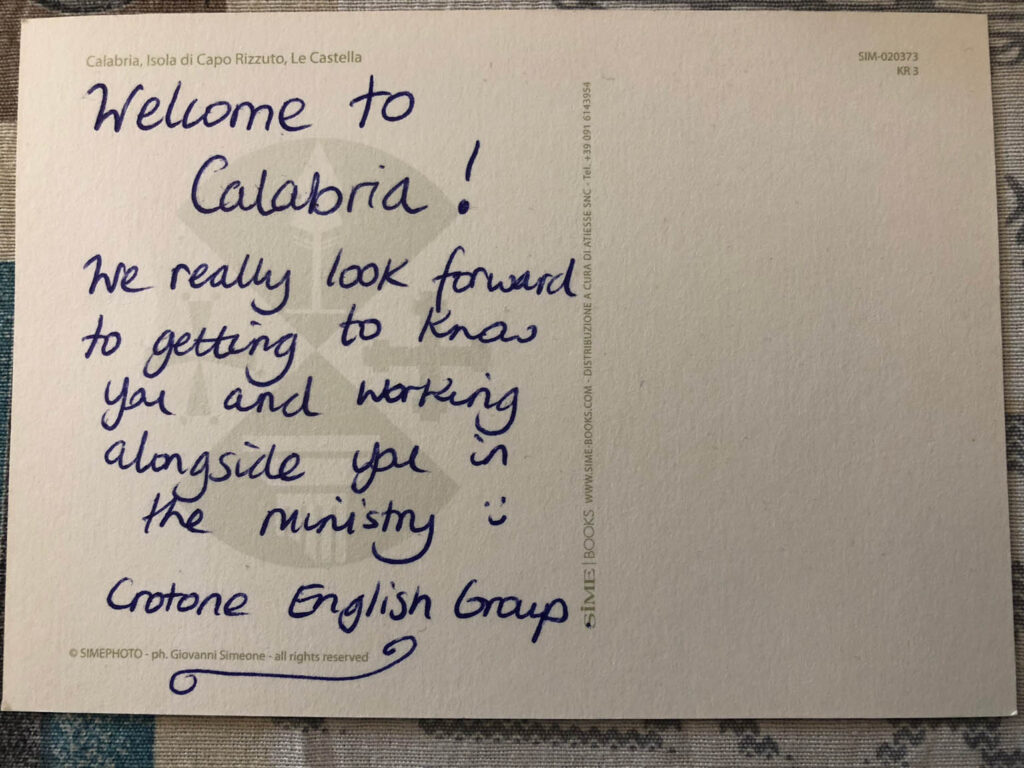 Calabria, Isola di Capo Rizzuto, Le Castella
SIM-020373
KR 3
Welcome to
Calabria!
We really look forward
to getting to know
you and working
alongside you in
the ministry :)
Crotone English Group
© SIMEPHOTO - ph. Giovanni Simeone - all rights reserved
SIME|BOOKS WWW.SIME-BOOKS.COM - DISTRIBUZIONE A CURA DI ATIESSE SNC - Tel. +39 091 6143954